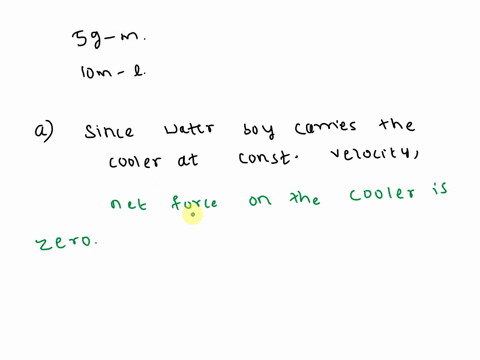 5g-m.
10m-l.
a) Since water boy carries the
cooler at const. velocity,
net force on the cooler is
zero.